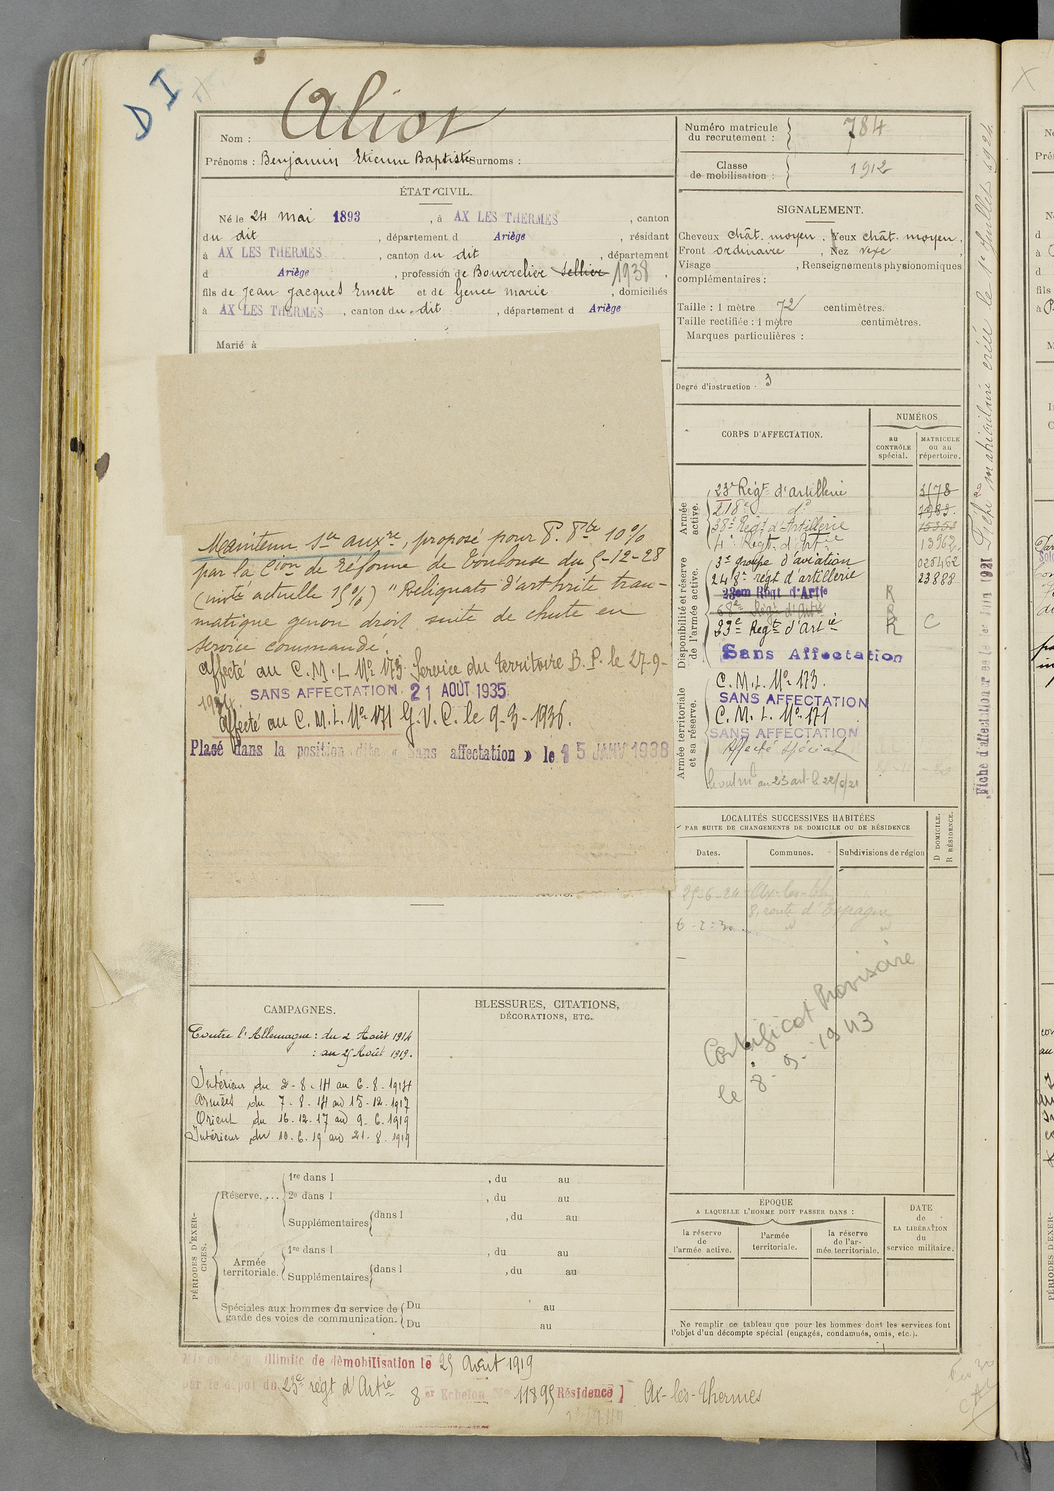 D I
Aliot
Nom :
Prénoms : Benjamin Etienne Baptiste Surnoms :
Numéro matricule
du recrutement : 784
Classe
de mobilisation : 1912
ÉTAT CIVIL.
Né le 24 mai 1893, à AX LES THERMES, canton
du dit, département d Ariège, résidant
à AX LES THERMES, canton du dit, département
d Ariège, profession de Bourrelier Sellier 1938,
fils de Jean Jacques Ernest et de Gence marie, domiciliés
à AX LES THERMES, canton du dit, département d Ariège
Marié à
SIGNALEMENT.
Cheveux chât. moyen, Yeux chât. moyen,
Front ordinaire, Nez vexe,
Visage , Renseignements physionomiques
complémentaires :
Taille : 1 mètre 72 centimètres.
Taille rectifiée : 1 mètre centimètres.
Marques particulières :
Degré d'instruction : 3
Maintenu Sce auxre, proposé pour P. Pte 10%
par la Cion de Réforme de Toulouse du 5-12-28
(invté actuelle 15%) "Reliquats d'arthrite trau-
matique genou droit suite de chute en
service commandé.
Affecté au C.M.L No 173. Service du territoire B.P. le 27-9-
SANS AFFECTATION. 21 AOUT 1935
Affecté au C.M.L. No 171 G.V.C. le 9-3-1936.
Placé dans la position dite « Sans affectation » le 15 JANV 1938
CORPS D'AFFECTATION.
NUMÉROS
au
CONTRÔLE
spécial.
MATRICULE
ou au
répertoire.
Armée
active.
23e Régt d'artillerie 3178
218e do
38e Régt d'Artillerie
4e Régt d'Artie 13962
Disponibilité et réserve
de l'armée active.
3e groupe d'aviation
248e régt d'artillerie 23888
23em Régt d'Artie R
68e Régt d'Artie R
23e Régt d'Artie R C
Sans Affectation
Armée territoriale
et sa réserve.
C.M.L. No 173.
SANS AFFECTATION
C.M.L. No 171
SANS AFFECTATION
Affecté spécial
Fiche matriculaire créée le 1er Juillet 1924
LOCALITÉS SUCCESSIVES HABITÉES
PAR SUITE DE CHANGEMENTS DE DOMICILE OU DE RÉSIDENCE
Dates.
Communes.
Subdivisions de région
D DOMICILE.
R RÉSIDENCE.
25-6-24 Ax-les-Th
8, route d'Espagne
Certificat Provisoire
le 8-9-1943
CAMPAGNES.
Contre l'Allemagne : du 2 Août 1914
: au 25 Août 1919.
Intérieur du 2-8-14 au 6-8-1914
Armées du 7-8-14 au 15-12-1917
Orient du 16-12-17 au 9-6-1919
Intérieur du 10-6-19 au 21-8-1919
BLESSURES, CITATIONS,
DÉCORATIONS, ETC.
PÉRIODES D'EXER-
CICES.
Réserve....
1re dans l , du au
2e dans l , du au
Supplémentaires dans l , du au
Armée
territoriale.
1re dans l , du au
Supplémentaires dans l , du au
Spéciales aux hommes du service de
garde des voies de communication.
Du au
Du au
ÉPOQUE
A LAQUELLE L'HOMME DOIT PASSER DANS :
la réserve
de
l'armée active.
l'armée
territoriale.
la réserve
de l'ar-
mée territoriale.
DATE
de
LA LIBÉRATION
du
service militaire.
Ne remplir ce tableau que pour les hommes dont les services font
l'objet d'un décompte spécial (engagés, condamnés, omis, etc.).
illimité de démobilisation le 25 Août 1919
par le dépôt du 23e régt d'Artie 8 er Echelon No 11895 Résidence ] Ax-les-Thermes